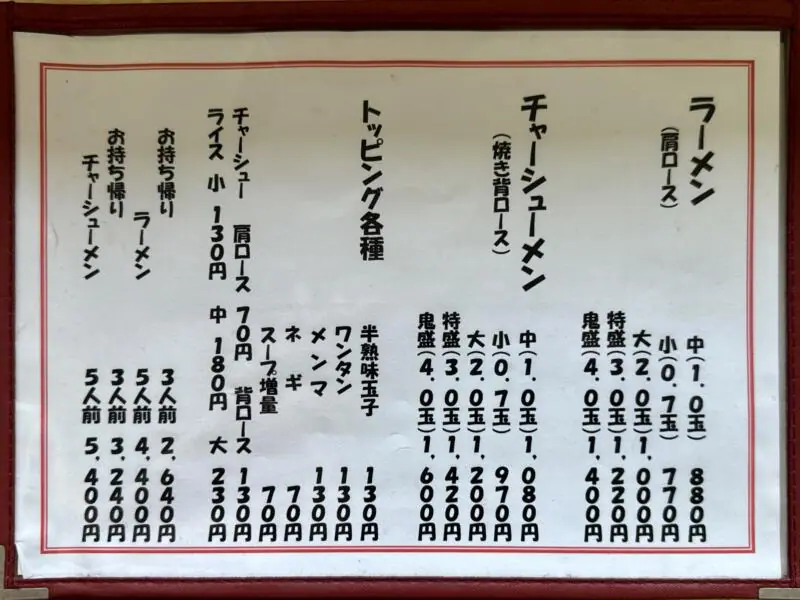 ラーメン
(肩ロース)
中(1.0玉) 880円
小(0.7玉) 770円
大(2.0玉)1,000円
特盛(3.0玉)1,220円
鬼盛(4.0玉)1,400円
チャーシューメン
(焼き背ロース)
中(1.0玉)1,080円
小(0.7玉) 970円
大(2.0玉)1,200円
特盛(3.0玉)1,420円
鬼盛(4.0玉)1,600円
トッピング各種
半熟味玉子 130円
ワンタン 130円
メンマ 130円
ネギ 70円
スープ増量 70円
チャーシュー 肩ロース 70円 背ロース 130円
ライス 小 130円 中 180円 大 230円
お持ち帰り ラーメン 3人前 2,640円
5人前 4,400円
お持ち帰り チャーシューメン 3人前 3,240円
5人前 5,400円